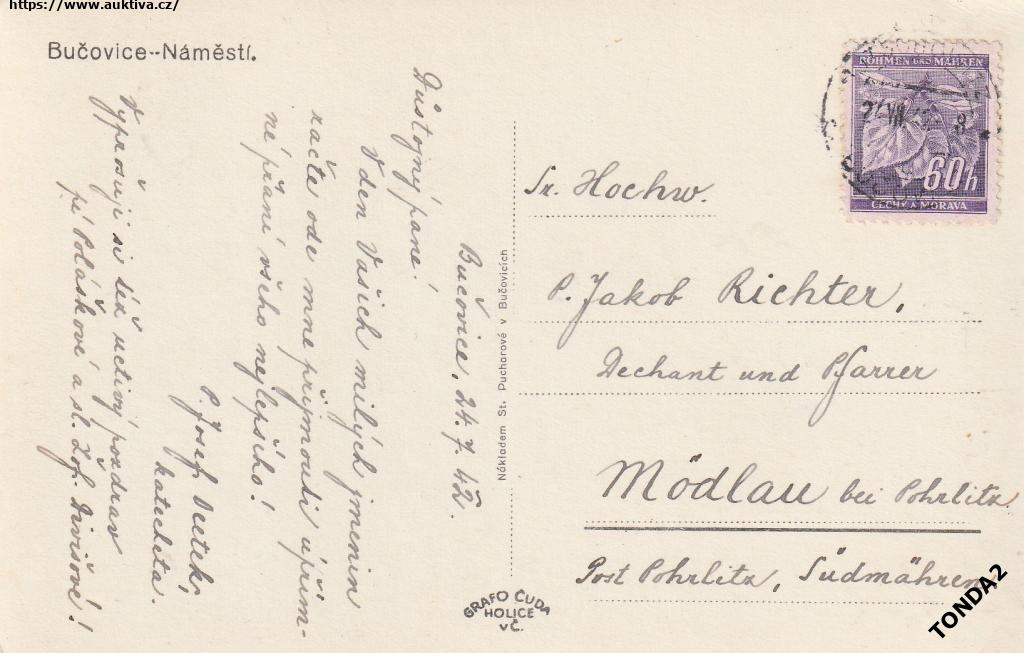 https://www.auktiva.cz/
Bučovice-Náměstí.
Bučovice, 24. 7. 42.
Důstojný pane!
V den Vašich milých jmenin
račte ode mne přijmouti upřím-
né přání všeho nejlepšího!
P. Josef
katecheta.
Vyprošuji si též uctivý pozdrav
pí Poláškové a sl. Žof. Divišové!
Nákladem St. Pucharové v Bučovicích
GRAFO ČUDA
HOLICE
v Č.
BÖHMEN UND MÄHREN
60h
ČECHY A MORAVA
Sr. Hochw.
P. Jakob Richter,
Dechant und Pfarrer
Mödlau bei Pohrlitz
Post Pohrlitz, Südmähren
TONDA2